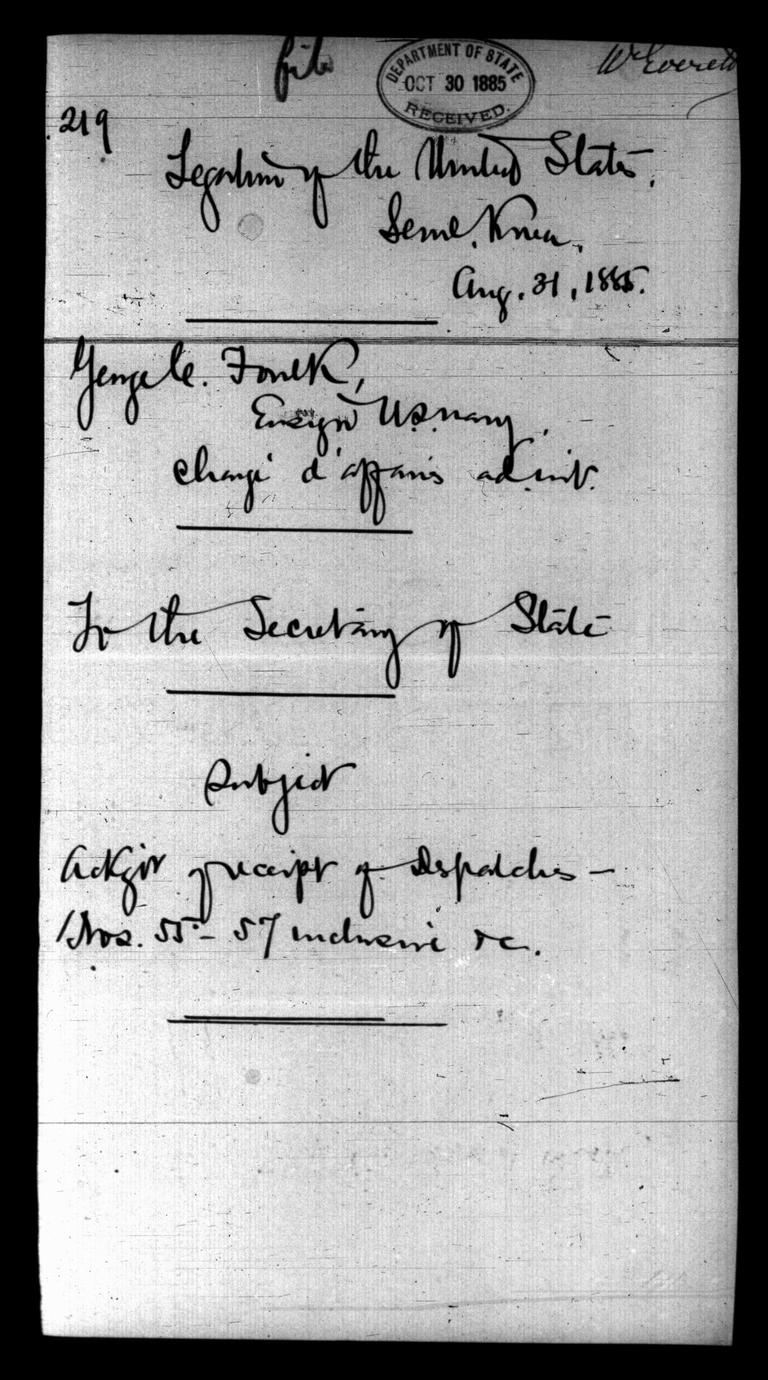 file
DEPARTMENT OF STATE
OCT 30 1885
RECEIVED.
Mr Everett
219
Legation of the United States.
Seoul, Korea.
Aug. 31, 1885.
George C. Foulk,
Ensign U.S. Navy,
chargé d'affaires ad. int.
To the Secretary of State
Subject
of receipt of Despatches –
Nos. 55 – 57 inclusive &c.